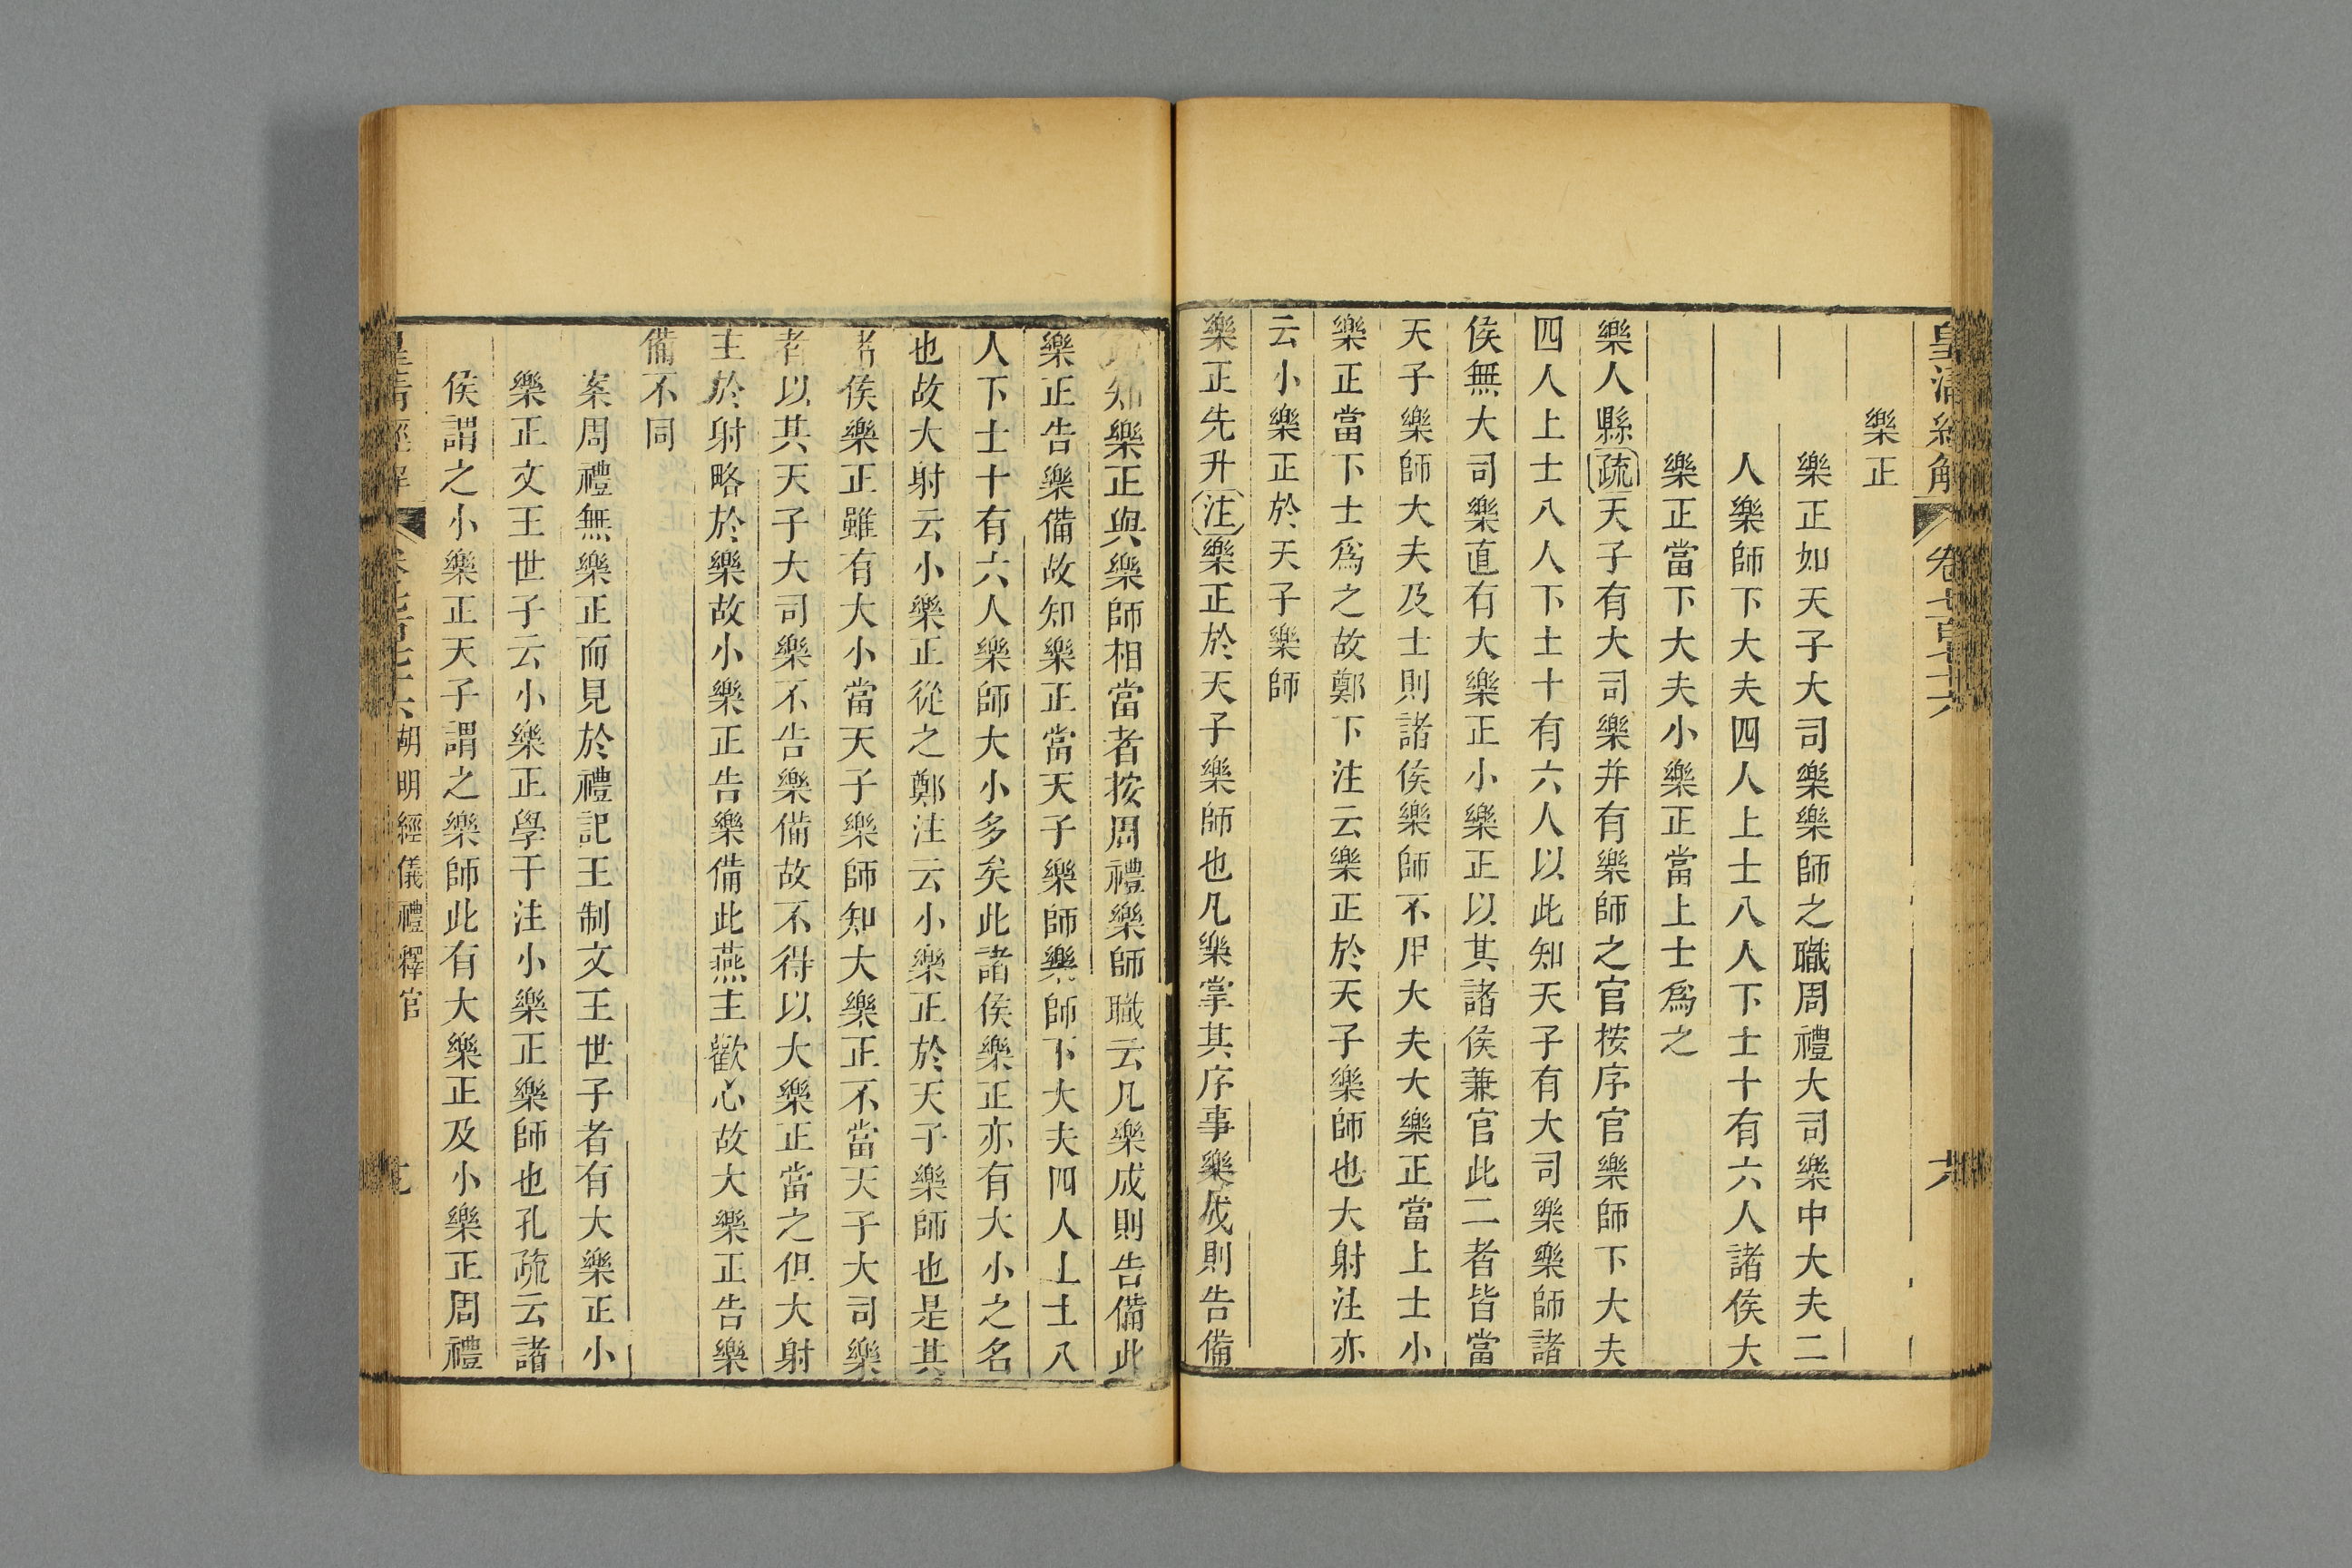 皇清經解 卷七百七十六 六
樂正
樂正如天子大司樂樂師之職周禮大司樂中大夫二
人樂師下大夫四人上士八人下士十有六人諸侯大
樂正當下大夫小樂正當上士爲之
樂人縣疏天子有大司樂并有樂師之官按序官樂師下大夫
四人上士八人下士十有六人以此知天子有大司樂樂師諸
侯無大司樂直有大樂正小樂正以其諸侯兼官此二者皆當
天子樂師大夫及士則諸侯樂師不用大夫大樂正當上士小
樂正當下士爲之故鄭下注云樂正於天子樂師也大射注亦
云小樂正於天子樂師
樂正先升注樂正於天子樂師也凡樂掌其序事樂成則告備
知樂正與樂師相當者按周禮樂師職云凡樂成則告備此
樂正告樂備故知樂正當天子樂師樂師下大夫四人上士八
人下士十有六人樂師大小多矣此諸侯樂正亦有大小之名
也故大射云小樂正從之鄭注云小樂正於天子樂師也是其
諸侯樂正雖有大小當天子樂師知大樂正不當天子大司樂
者以其天子大司樂不告樂備故不得以大樂正當之但大射
主於射略於樂故小樂正告樂備此燕主歡心故大樂正告樂
備不同
案周禮無樂正而見於禮記王制文王世子者有大樂正小
樂正文王世子云小樂正學干注小樂正樂師也孔疏云諸
侯謂之小樂正天子謂之樂師此有大樂正及小樂正周禮
皇清經解 卷七百七十六 胡明經儀禮釋官